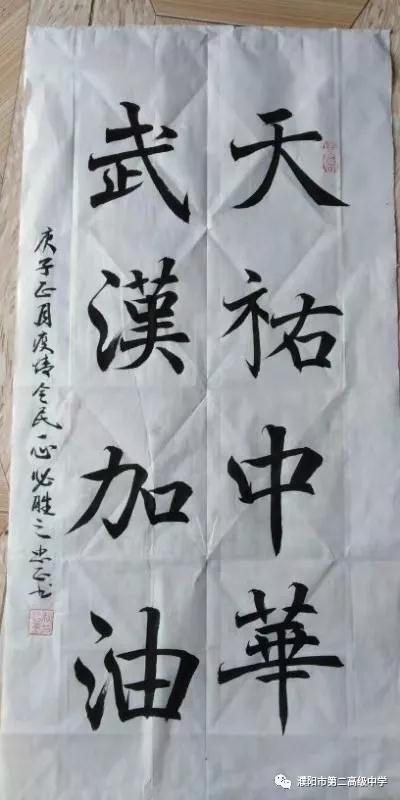 天祐中華
武漢加油
庚子正月疫情全民一心必胜之忠正书
濮阳市第二高级中学